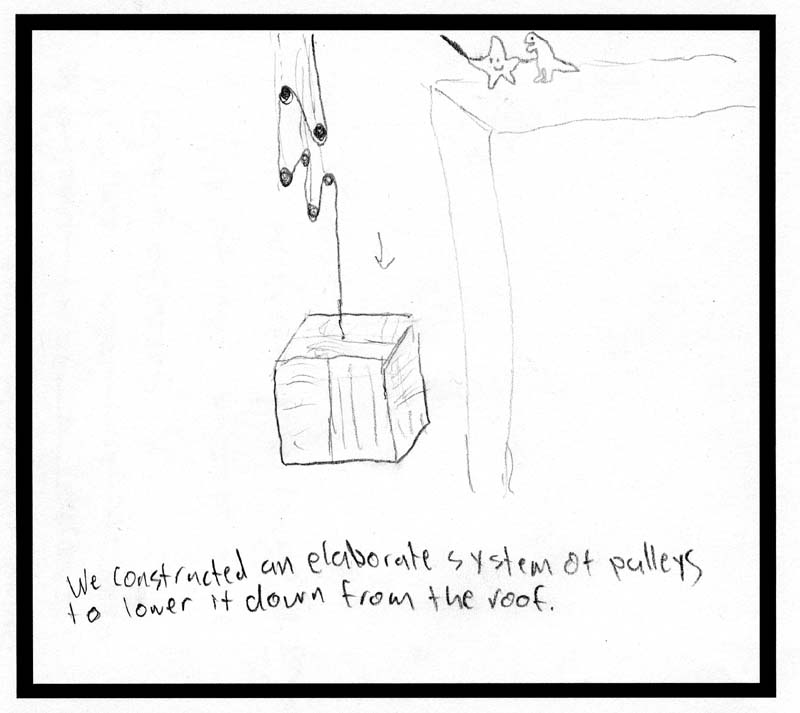 We constructed an elaborate system of pulleys
to lower it down from the roof.